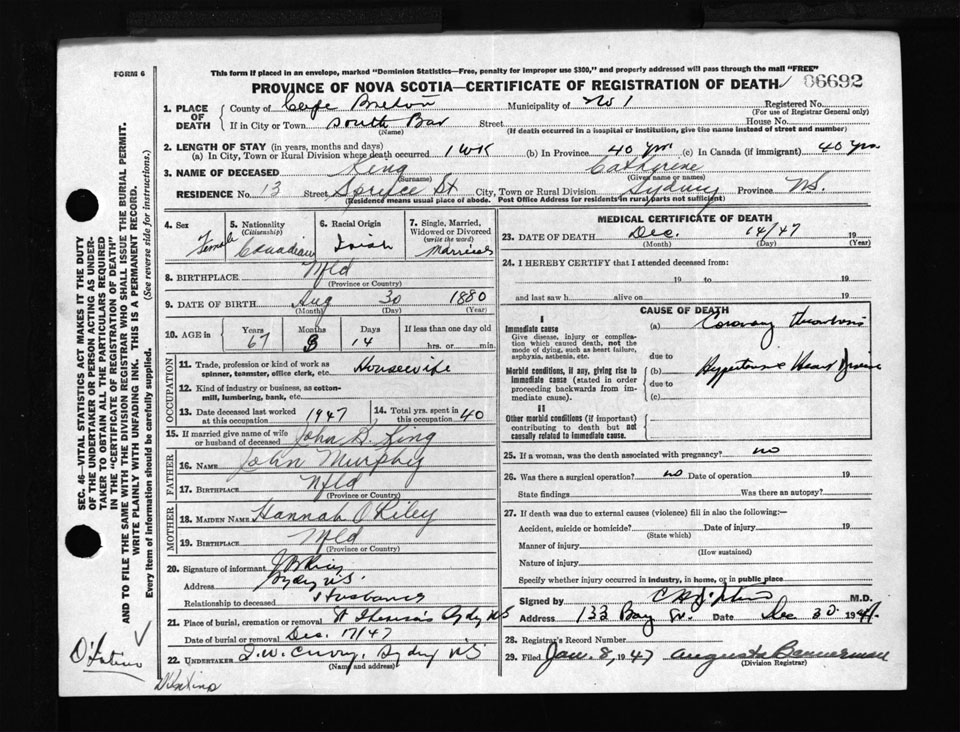 FORM 6
This form if placed in an envelope, marked "Dominion Statistics—Free, penalty for improper use $300," and properly addressed will pass through the mail "FREE"
PROVINCE OF NOVA SCOTIA—CERTIFICATE OF REGISTRATION OF DEATH 06692
1. PLACE OF DEATH County of Cape Breton Municipality of No 1 Registered No.
(For use of Registrar General only)
If in City or Town South Bar Street House No.
(Name) (If death occurred in a hospital or institution, give the name instead of street and number)
2. LENGTH OF STAY (in years, months and days)
(a) In City, Town or Rural Division where death occurred 1 WK (b) In Province 40 yrs. (c) In Canada (if immigrant) 40 yrs
3. NAME OF DECEASED King Catherine
(Surname) (Given name or names)
RESIDENCE No. 13 Street Spruce St City, Town or Rural Division Sydney Province N.S.
(Residence means usual place of abode. Post Office Address for Residents in rural parts not sufficient)
4. Sex 5. Nationality (Citizenship) 6. Racial Origin 7. Single, Married, Widowed or Divorced (write the word)
Female Canadian Irish Married
8. BIRTHPLACE Nfld
(Province or Country)
9. DATE OF BIRTH Aug 30 1880
(Month) (Day) (Year)
10. AGE in Years Months Days If less than one day old
67 3 14 hrs. or min.
OCCUPATION
11. Trade, profession or kind of work as spinner, teamster, office clerk, etc. Housewife
12. Kind of industry or business, as cotton-mill, lumbering, bank, etc.
13. Date deceased last worked at this occupation 1947 14. Total yrs. spent in this occupation 40
15. If married give name of wife or husband of deceased John B. King
FATHER
16. NAME John Murphy
17. BIRTHPLACE Nfld
(Province or Country)
MOTHER
18. MAIDEN NAME Hannah O Riley
19. BIRTHPLACE Nfld
(Province or Country)
20. Signature of informant J B King
Address Sydney N.S.
Relationship to deceased Husband
21. Place of burial, cremation or removal St Theresa's Sydney NS
Date of burial or removal Dec. 17/47
22. UNDERTAKER T.W. Curry, Sydney N'S
(Name and address)
MEDICAL CERTIFICATE OF DEATH
23. DATE OF DEATH Dec. 14/47 19
(Month) (Day) (Year)
24. I HEREBY CERTIFY that I attended deceased from:
19 to 19
and last saw h alive on 19
CAUSE OF DEATH
I
Immediate cause (a) Coronary Thrombosis
Give disease, injury or complication which caused death, not the mode of dying, such as heart failure, asphyxia, asthenia, etc.
due to
Morbid conditions, if any, giving rise to immediate cause (stated in order proceeding backwards from immediate cause).
(b) Hypertensive Heart Disease
due to
(c)
II
Other morbid conditions (if important) contributing to death but not causally related to immediate cause.
25. If a woman, was the death associated with pregnancy? no
26. Was there a surgical operation? no Date of operation 19
State findings Was there an autopsy?
27. If death was due to external causes (violence) fill in also the following:—
Accident, suicide or homicide? Date of injury 19
(State which)
Manner of injury
(How sustained)
Nature of injury
Specify whether injury occurred in industry, in home, or in public place
Signed by M.D.
Address 133 Bay St. Date Dec 30 1947
28. Registrar's Record Number
29. Filed Jan. 8, 1947 Augusta Bannerman
(Division Registrar)
SEC. 46—VITAL STATISTICS ACT MAKES IT THE DUTY
OF THE UNDERTAKER OR PERSON ACTING AS UNDER-
TAKER TO OBTAIN ALL THE PARTICULARS REQUIRED
IN THE "CERTIFICATE OF REGISTRATION OF DEATH"
AND TO FILE THE SAME WITH THE DIVISION REGISTRAR WHO SHALL ISSUE THE BURIAL PERMIT.
WRITE PLAINLY WITH UNFADING INK. THIS IS A PERMANENT RECORD.
Every item of information should be carefully supplied. (See reverse side for instructions.)